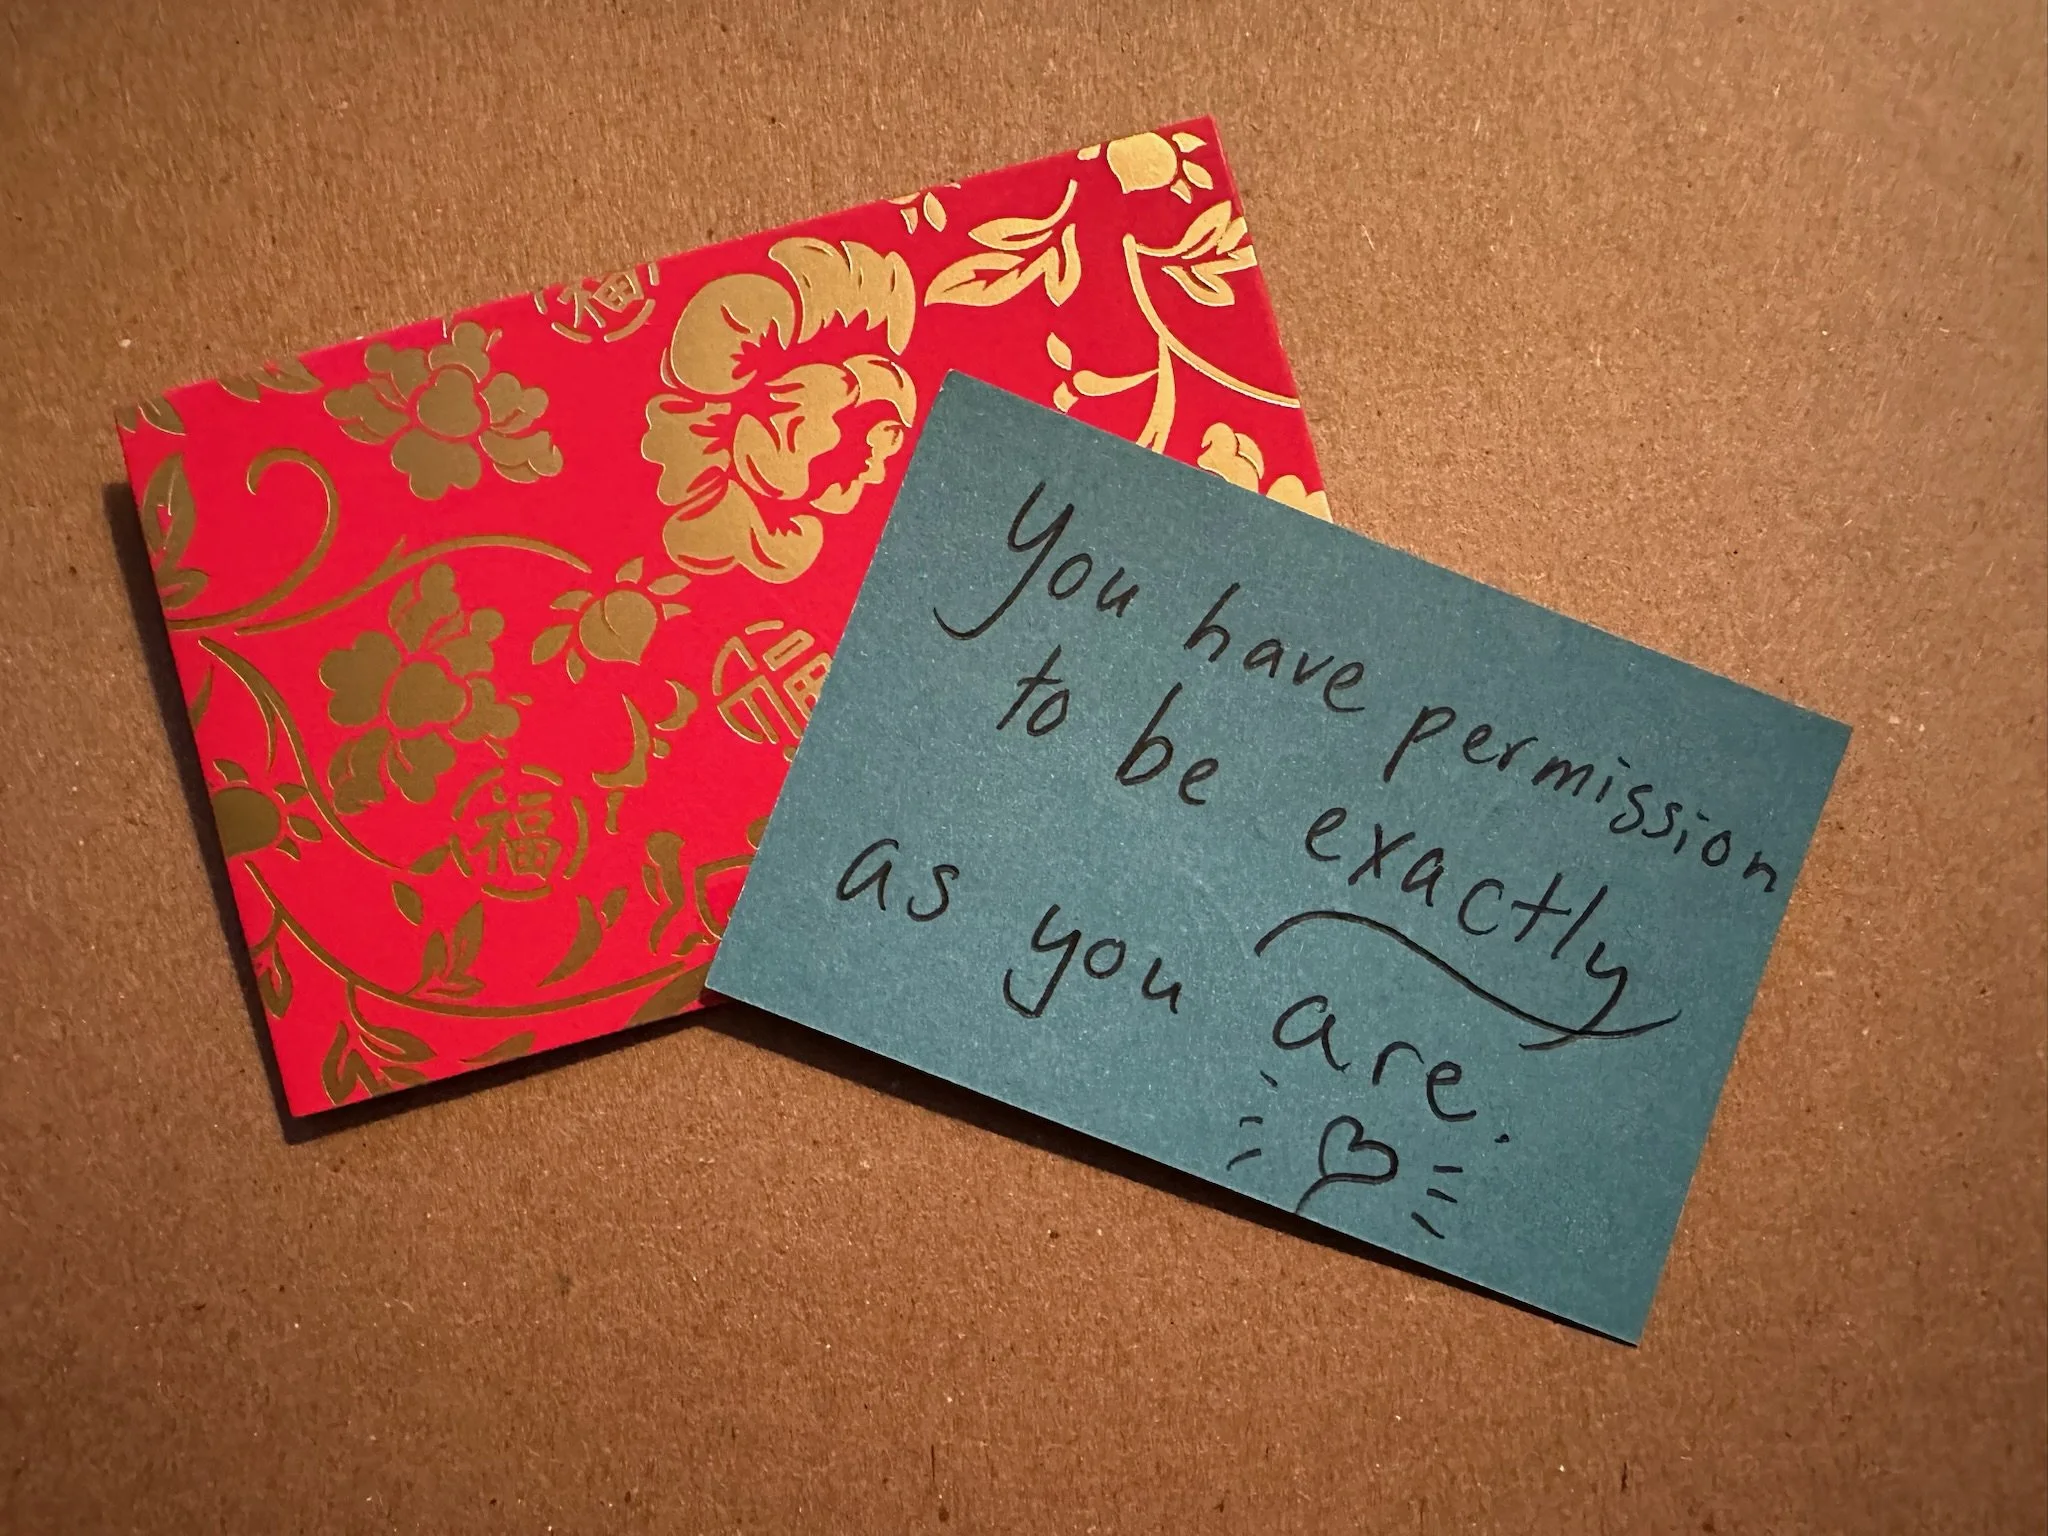 福
福
福
You have permission
to be exactly
as you are.